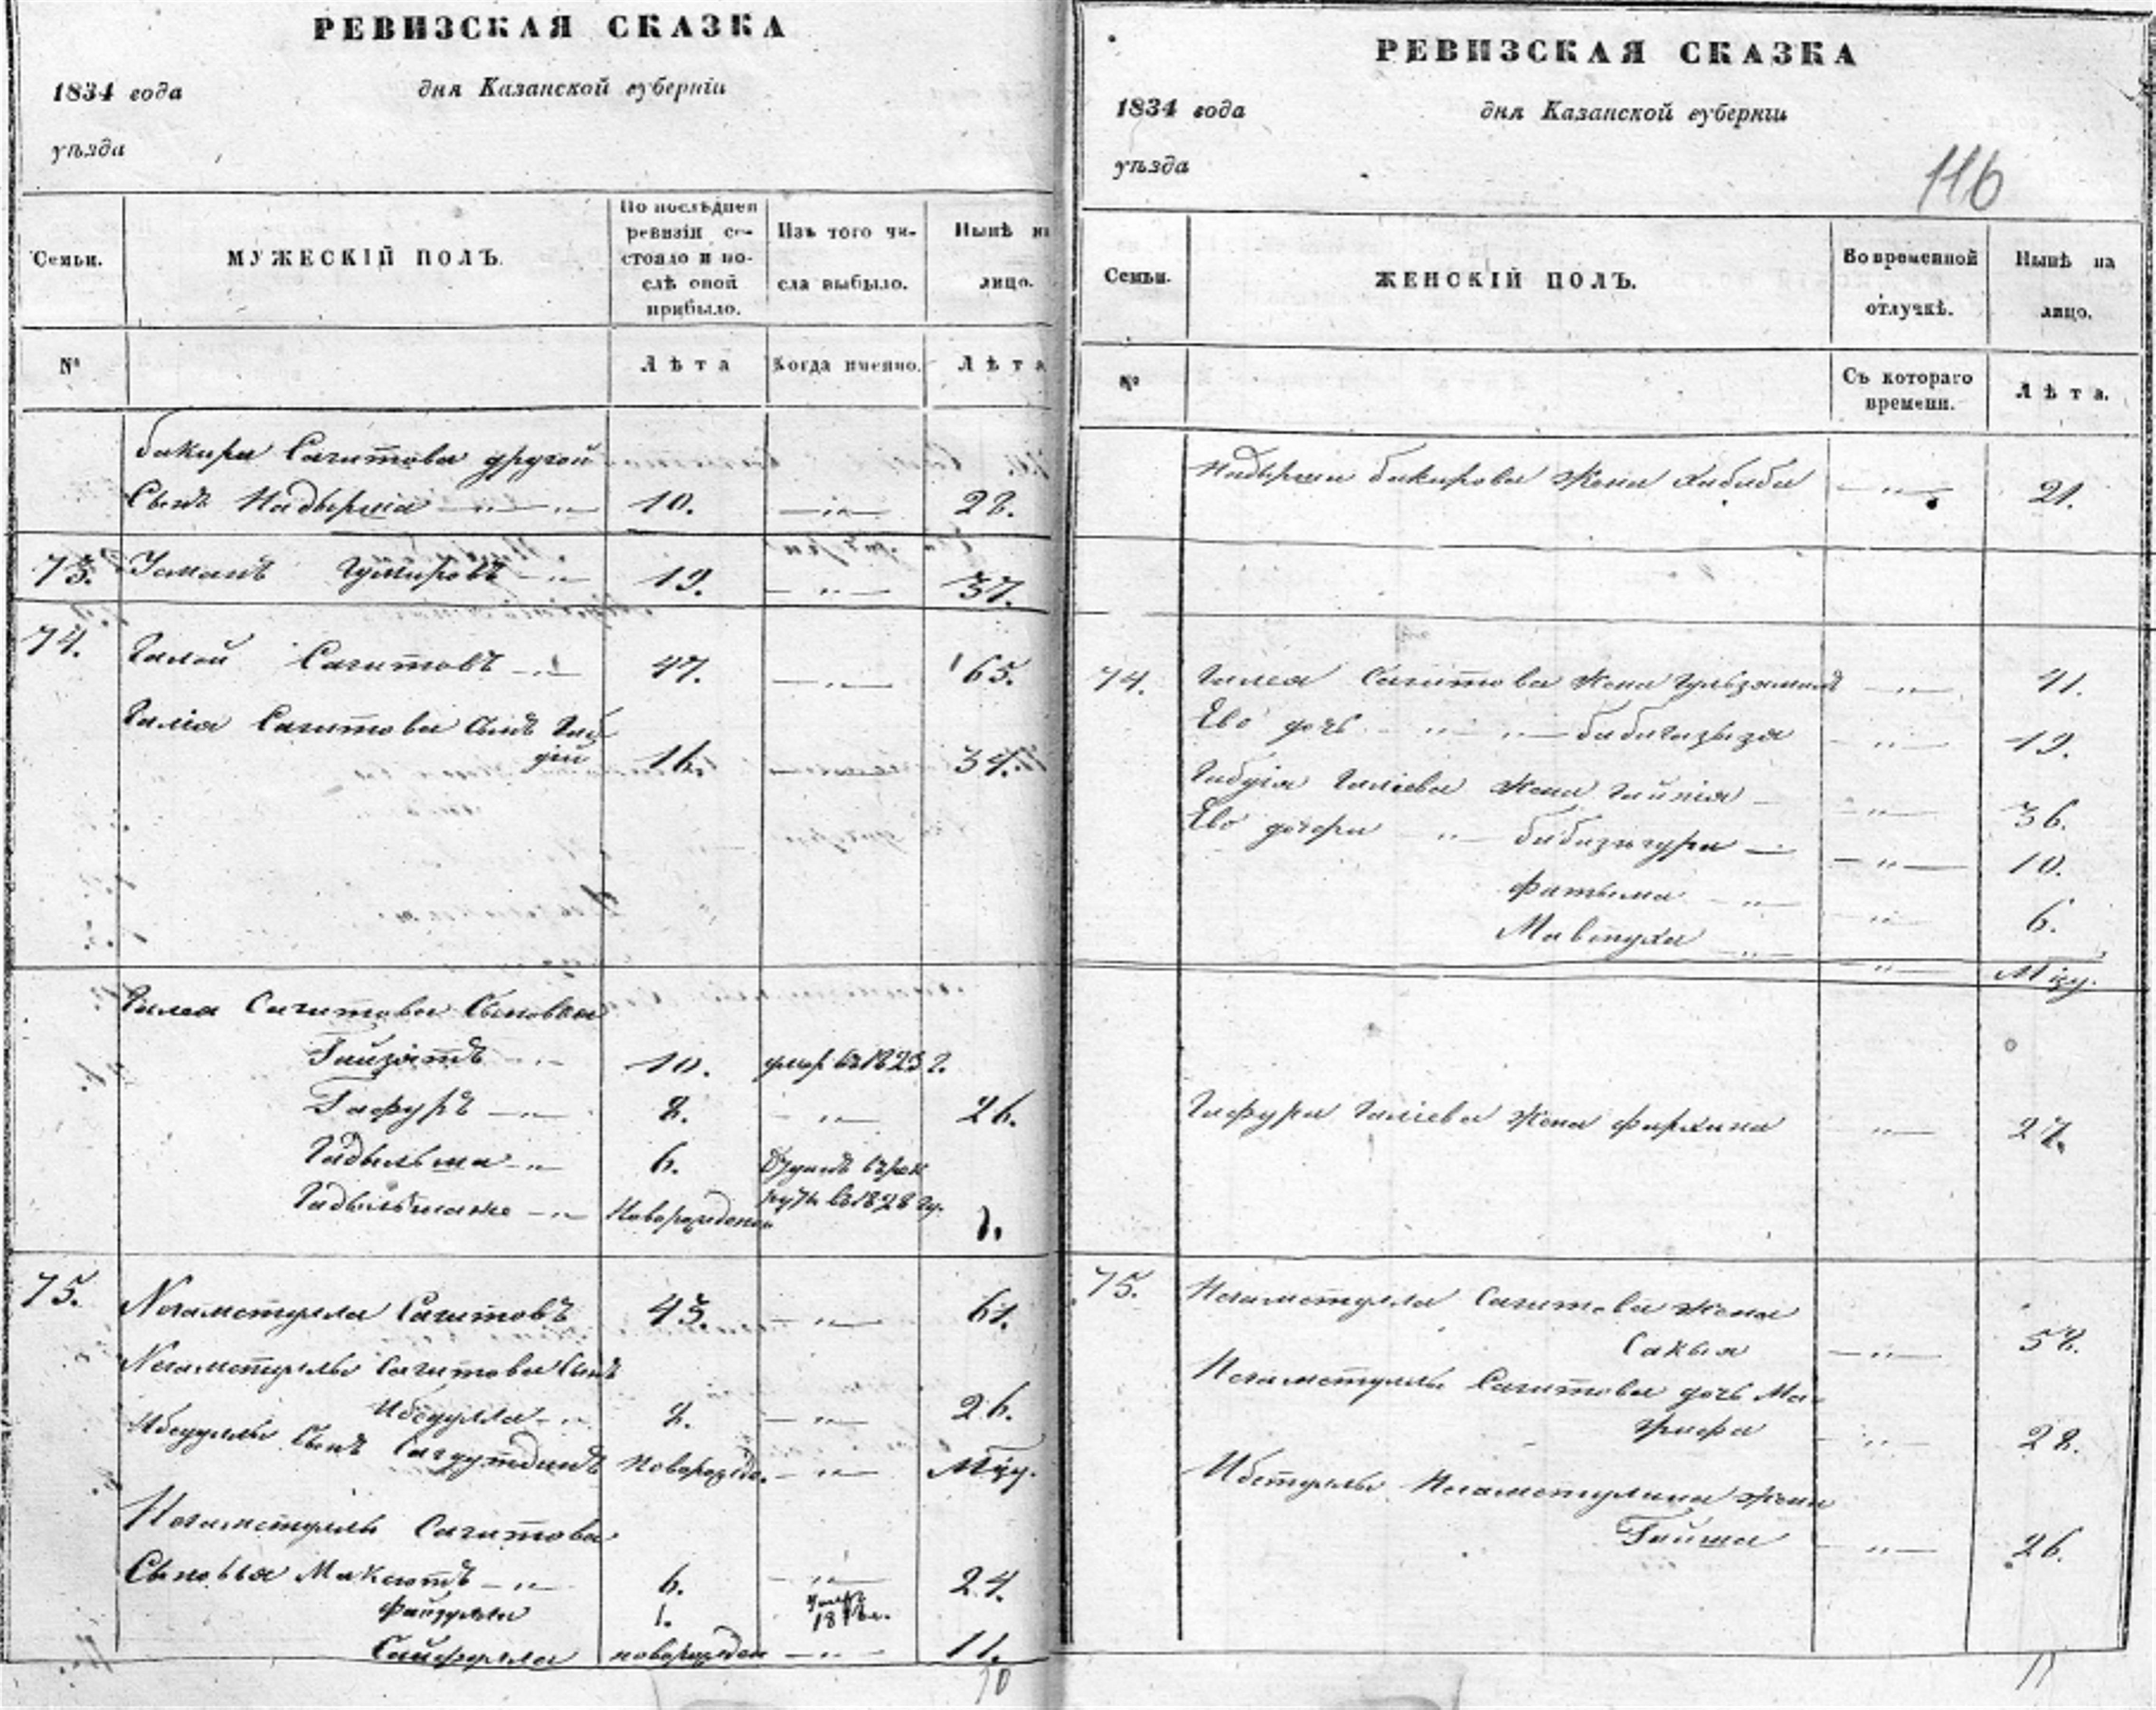 РЕВИЗСКАЯ СКАЗКА
1834 года дня Казанской губерніи
уѣзда
Семьи.
МУЖЕСКІЙ ПОЛЪ.
По послѣдней ревизіи состояло и послѣ оной прибыло.
Изъ того числа выбыло.
Нынѣ на лицо.
№
Лѣта
Когда именно.
Лѣта
бакира Сагитова другой
Сынъ Надырша — „ — 10. — „ — 28.
73. Усманъ Гумировъ — „ 19. — „ — 37.
74. Галей Сагитовъ — „ 47. — „ — 65.
Галія Сагитова сынъ Габ
дій 16. 34.
Галея Сагитова Сыновья
Гайзятъ — „ 10. умер. въ 1823 г.
Гафуръ — „ 8. — „ 26.
Гадильша — „ 6. Отданъ въ рек
руты въ 1828 гу.
Гадильшане — „ Новорожденъ 7.
75. Негаметулла Сагитовъ 43. — „ — 61.
Негаметуллы Сагитова Сынъ
Ибедулла — „ 8. — „ — 26.
Ибедуллы Сынъ Сагдутдинъ Новорожде. — „ — Мѣу.
Негаметуллы Сагитова
Сыновья Максютъ — „ 6. — „ — 24.
Файзулла 1. умеръ
Сайфулла новорожден — „ — 11.
10
РЕВИЗСКАЯ СКАЗКА
1834 года дня Казанской губерніи
уѣзда
116
Семьи.
ЖЕНСКІЙ ПОЛЪ.
Во временной отлучкѣ.
Нынѣ на лицо.
№
Съ котораго времени.
Лѣта.
Надырши бакирова жена Хабиба — „ — 21.
74. Галея Сагитова жена Гульзямалъ — „ — 41.
Ево дочь „ „ — бибигазиза — „ — 19.
Габдія Галіева жена Гайнія — — „ — 36.
Ево дочери „ бибизюгура — — „ — 10.
Фатыма — „ „ 6.
Мавтуха — „ — „ — Мѣу.
Гафура Галіева жена Фархина „ 27.
75. Негаметулла Сагитова жена
Сакыя — „ — 58.
Негаметуллы Сагитова дочь Ма-
грифа — „ 28.
Ибетуллы Негаметулина жена
Гайша — „ — 26.
11